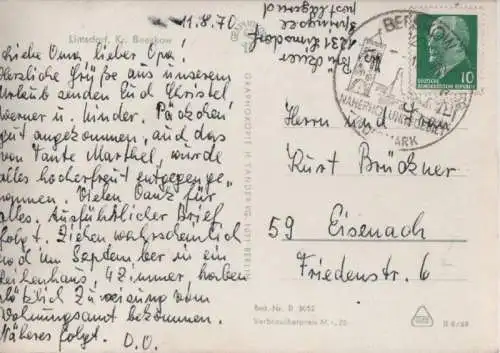 11.8.70.
Limsdorf, Kr. Beeskow
Liebe Oma, lieber Opa!
Herzliche Grüße aus unserem
Urlaub senden Euch Christel,
Werner u. Kinder. Päckchen
gut angekommen, auch das
von Tante Marthel, wurde
alles hocherfreut entgegenge-
nommen. Vielen Dank für
alles. Ausführlicher Brief
folgt. Ziehen wahrscheinlich
noch im September in ein
Reihenhaus, 4 Zimmer haben
plötzlich Zuweisung vom
Wohnungsamt bekommen.
Näheres folgt. D.O.
1231 Limsdorf
GRAPHOKOPIE H. SANDER KG, 1071 BERLIN
BEESKOW
NAHERHOLUNGSGEBIET
MARK
10
DEUTSCHE
DEMOKRATISCHE REPUBLIK
Herrn und Frau
Kurt Brückner
59 Eisenach
Friedenstr. 6
Best.-Nr. D 9052
Verbraucherpreis M -,20